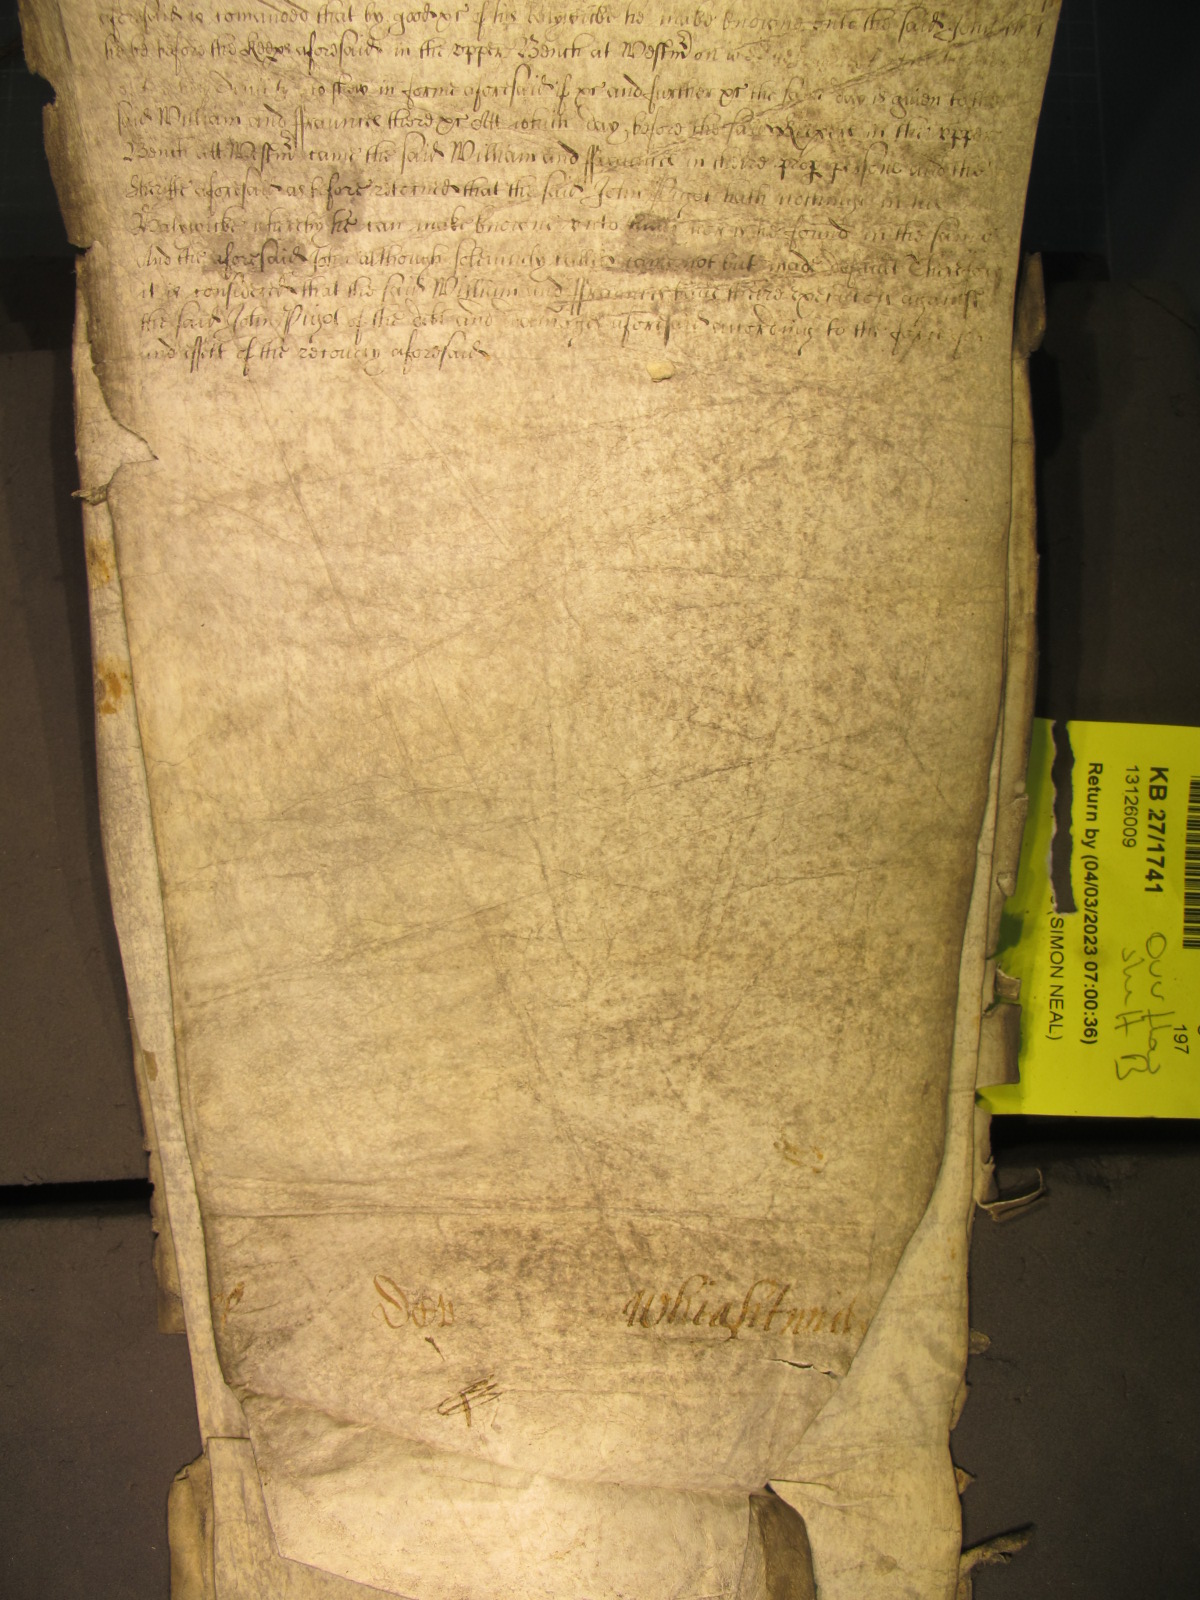 aforesaid is comanded that by good &c of his Baylywicke he make knowne unto the said John that
he be before the Keeps aforesaid in the upper Bench at Westmr on
to shew in forme aforesaid if &c and further &c the same day is given to the
said William and Fraunces there &c Att which day before the said Keepers in the upper
Bench att Westmr came the said William and Fraunces in theire prop persons and the
Sheriffe aforesaid as before retorned that the said John Pigot hath nothinge in his
Baylywicke whereby he can make knowne unto him nor is he found in the same
And the aforesaid John although solemnly called came not but made default Therefore
it is considered that the said William and Fraunces have theire execution against
the said John Pigot of the debt and damages aforesaid according to the force
and effect of the recovery aforesaid
Whightwick
KB 27/1741
13126009
Return by (04/03/2023 07:00:36)
(SIMON NEAL)
197